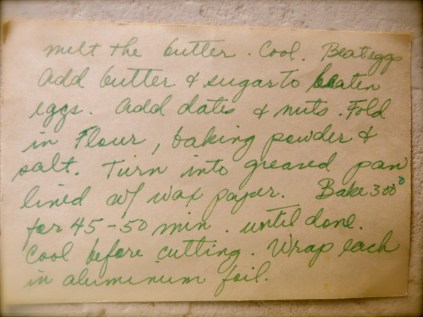 melt the butter. Cool. Beat eggs
Add butter & sugar to beaten
eggs. Add dates & nuts. Fold
in Flour, baking powder &
salt. Turn into greased pan
lined w/ wax paper. Bake 300°
for 45-50 min. until done.
Cool before cutting. Wrap each
in aluminum foil.